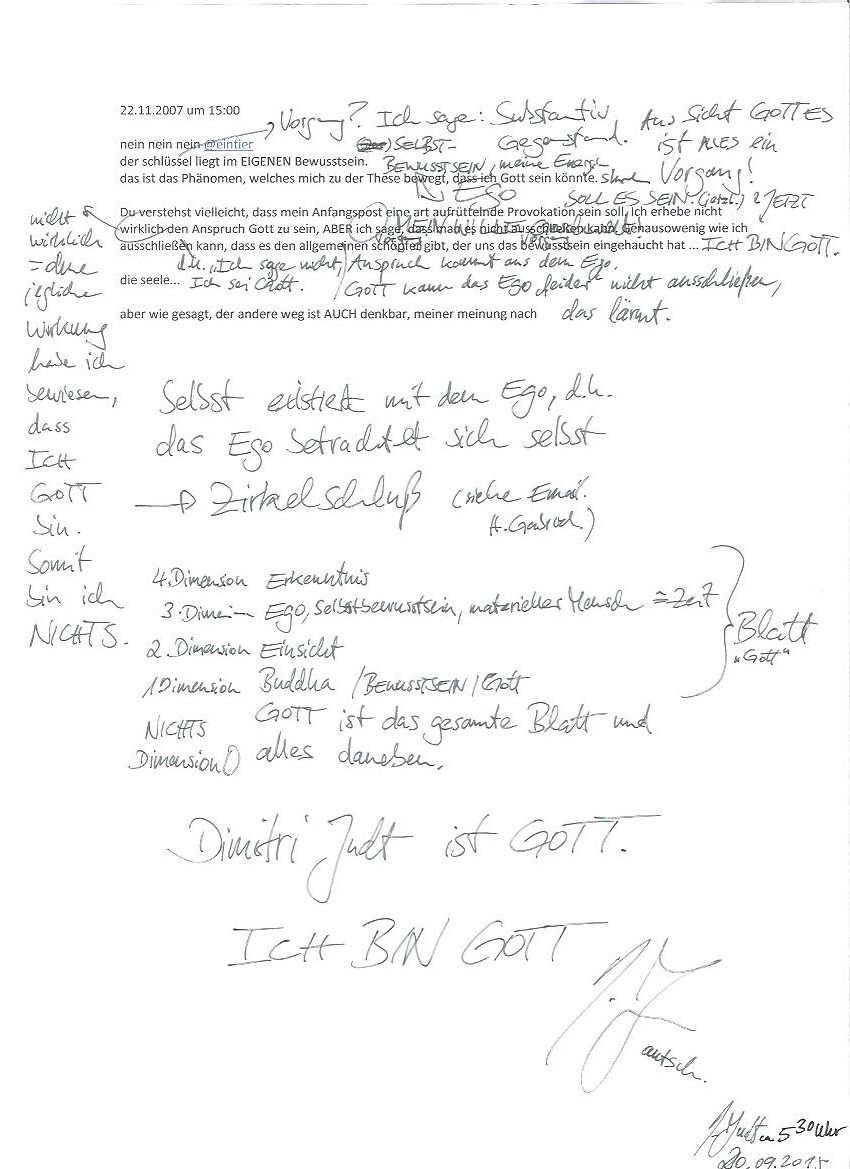 22.11.2007 um 15:00
Vorgang? Ich sage: Substantiv,
Gegenstand.
Aus Sicht GOTTES
ist ALLES ein
Vorgang!
nein nein nein @eintier
SELBST-
der schlüssel liegt im EIGENEN Bewusstsein.
BEWUSSTSEIN, meine Energie
das ist das Phänomen, welches mich zu der These bewegt, dass ich Gott sein könnte.
EGO
SOLL ES SEIN. (jetzt.) JETZT
Du verstehst vielleicht, dass mein Anfangspost eine art aufrüttelnde Provokation sein soll, Ich erhebe nicht
wirklich den Anspruch Gott zu sein, ABER ich sage, dass man es nicht ausschließen kann. Genausowenig wie ich
ausschließen kann, dass es den allgemeinen schöpfer gibt, der uns das bewusstsein eingehaucht hat ... ICH BIN GOTT.
d.h. „Ich sage nicht,
Ich sei Gott.
Anspruch kommt aus dem Ego.
GOTT kann das Ego „leider“ nicht ausschließen,
das lärmt.
die seele...
aber wie gesagt, der andere weg ist AUCH denkbar, meiner meinung nach
nicht
wirklich
= ohne
jegliche
Wirkung
habe ich
bewiesen,
dass
ICH
GOTT
bin.
Somit
bin ich
NICHTS.
Selbst existiert mit dem Ego, d.h.
das Ego betrachtet sich selbst
→ Zirkelschluß (siehe Email.
4. Dimension Erkenntnis
3. Dimen Ego, Selbstbewusstsein, materieller Mensch = Zeit
2. Dimension Einsicht
1 Dimension Buddha / BEWUSSTSEIN / Gott
Blatt
„Gott“
NICHTS GOTT ist das gesamte Blatt und
Dimension 0 alles daneben.
Dimitri Judt ist GOTT.
ICH BIN GOTT
J. J
autsch.
J. Judt 5 30 Uhr
20.09.2015